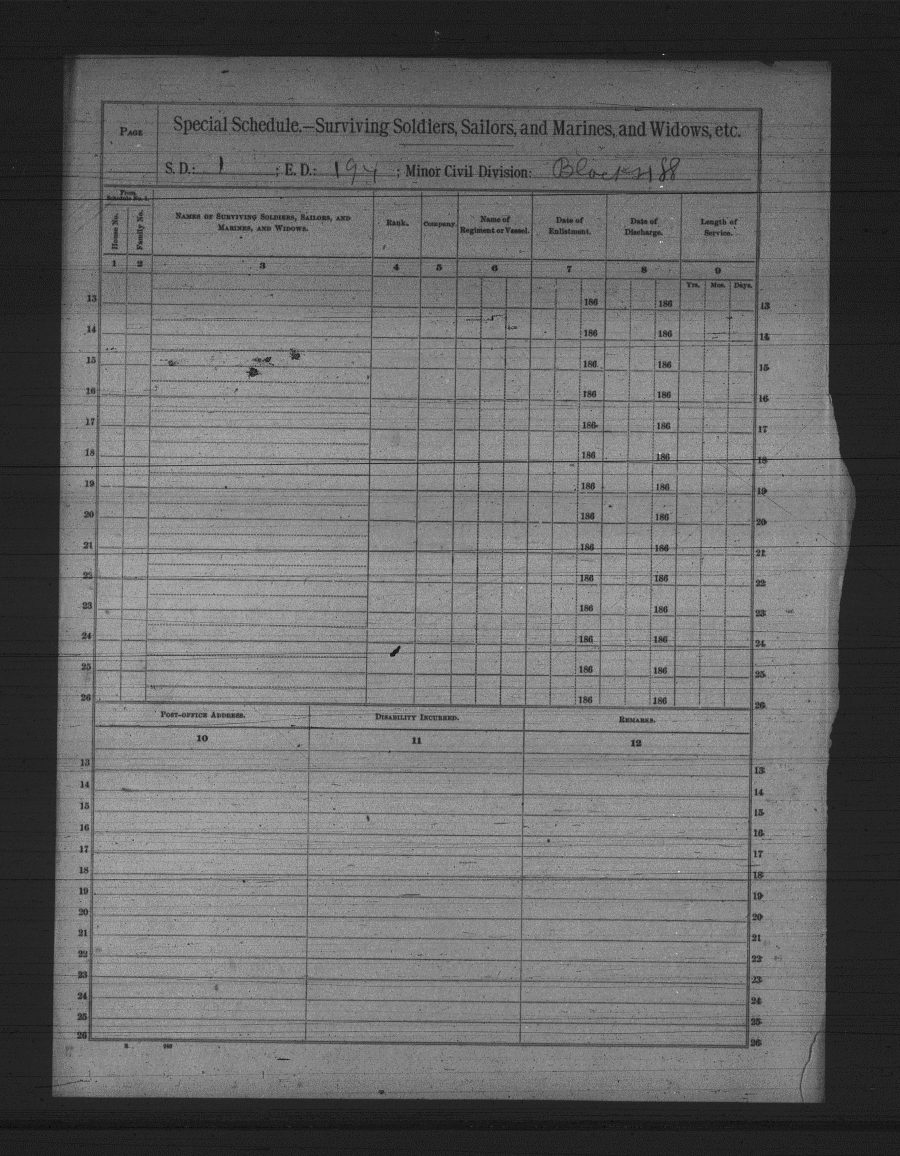 PAGE
Special Schedule.—Surviving Soldiers, Sailors, and Marines, and Widows, etc.
S. D.: 1 ; E. D.: 194 ; Minor Civil Division:
From Schedule No. 1.
House No.
Family No.
NAMES OF SURVIVING SOLDIERS, SAILORS, AND MARINES, AND WIDOWS.
Rank.
Company.
Name of Regiment or Vessel.
Date of Enlistment.
Date of Discharge.
Length of Service.
1 2 3 4 5 6 7 8 9
Yrs. Mos. Days.
13 186 186 13
14 186 186 14
15 186 186 15
16 186 186 16
17 186 186 17
18 186 186 18
19 186 186 19
20 186 186 20
21 186 186 21
22 186 186 22
23 186 186 23
24 186 186 24
25 186 186 25
26 186 186 26
POST-OFFICE ADDRESS. DISABILITY INCURRED. REMARKS.
10 11 12
13 13
14 14
15 15
16 16
17 17
18 18
19 19
20 20
21 21
22 22
23 23
24 24
25 25
26 26